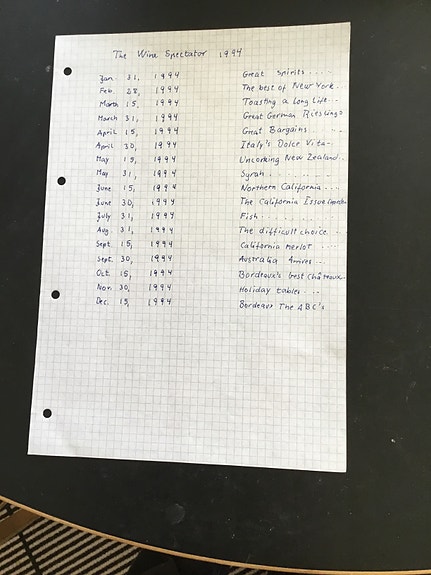 The Wine Spectator 1994
Jan. 31, 1994 Great Spirits . . . .
Feb. 28, 1994 The best of New York . . .
March 15, 1994 Toasting a Long Life . .
March 31, 1994 Great German Rieslings
April 15, 1994 Great Bargains . . .
April 30, 1994 Italy's Dolce Vita -
May 15, 1994 Uncorking New Zealand . .
May 31, 1994 Syrah . . . . . . . .
June 15, 1994 Northern California . . . .
June 30, 1994 The California Issue
July 31, 1994 Fish . . . . . . .
Aug. 31, 1994 The difficult choice . .
Sept. 15, 1994 California merlot . . .
Sept. 30, 1994 Australia Arrives . . .
Oct. 15, 1994 Bordeaux's best Châteaux . .
Nov. 30, 1994 Holiday tables . . .
Dec. 15, 1994 Bordeaux The ABC's